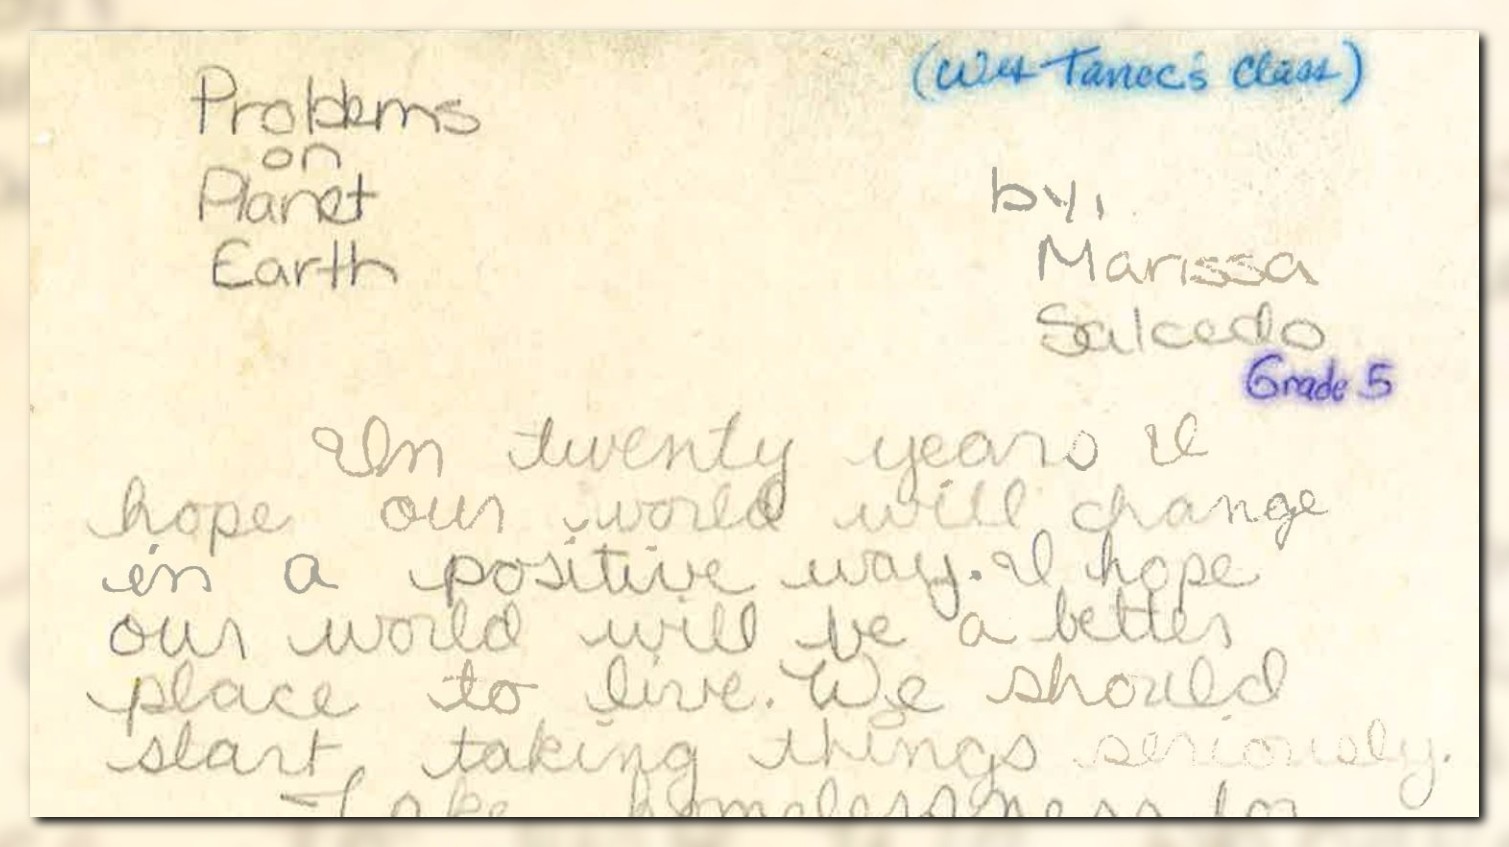 Problems
on
Planet
Earth
(Wes Tanoc's Class)
by,
Marissa
Salcedo
Grade 5
In twenty years I
hope our world will change
in a positive way. I hope
our world will be a better
place to live. We should
start taking things seriously.
Take homelessness for